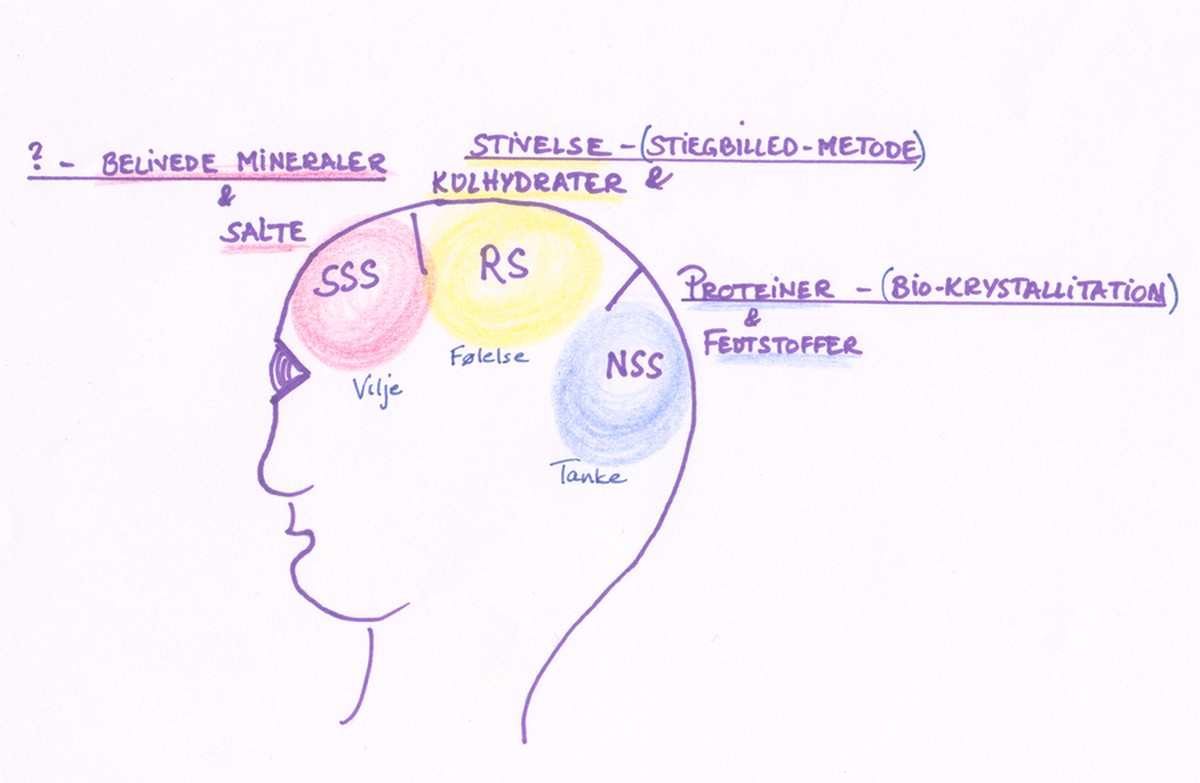 ? - BELIVEDE MINERALER
&
SALTE
STIVELSE - (STIEGBILLED-METODE)
KULHYDRATER &
PROTEINER - (BIO-KRYSTALLITATION)
&
FEDTSTOFFER
SSS
RS
NSS
Vilje
Følelse
Tanke